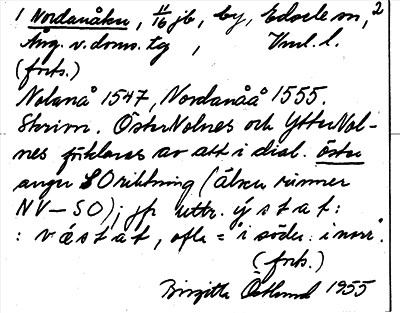 1 Nordanåker, 11/16 jb, by, Edsele sn, 2
Ång. v. doms. tg, Vnl. l.
(forts.)
Nolanå 1547, Nordanåå 1555.
Skrivn. ÖsterNolnes och YtterNol-
nes förklaras av att i dial. öster
anger SO riktning (älven rinner
NV–SO); jfr uttr. ýstat:
: væstat, ofta = "i söder: i norr".
(forts.)
Birgitta Östlund 1955